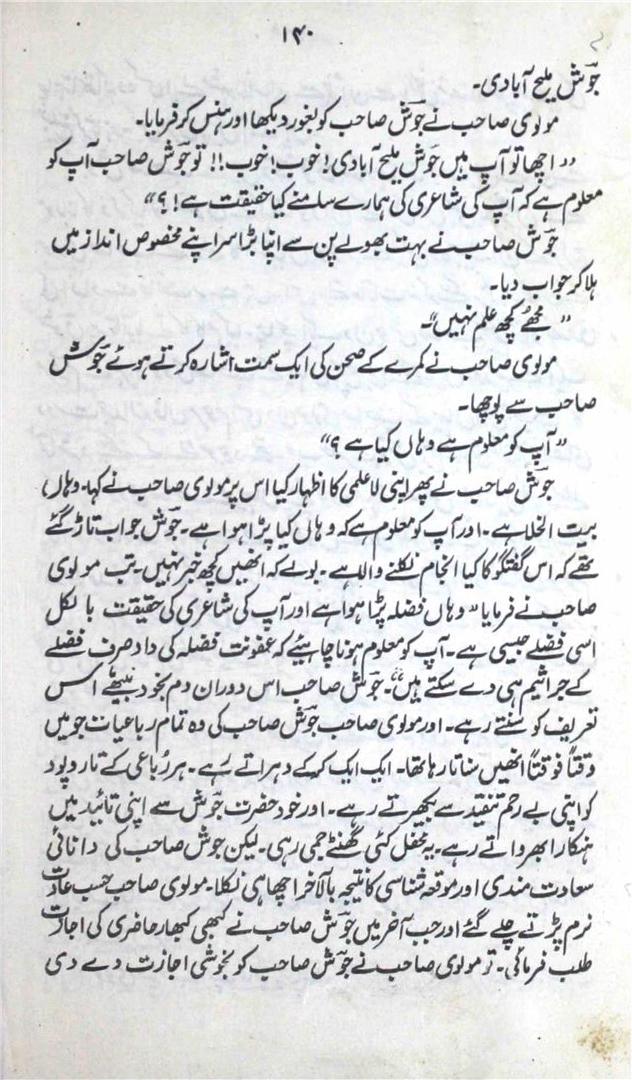 ۱۴۰
جوؔش ملیح آبادی۔
مولوی صاحب نے جوؔش صاحب کو بغور دیکھا اور ہنس کر فرمایا۔
”اچھا تو آپ ہیں جوؔش ملیح آبادی! خوب! خوب!! تو جوؔش صاحب آپ کو
معلوم ہے کہ آپ کی شاعری کی ہمارے سامنے کیا حقیقت ہے!؟“
جوؔش صاحب نے بہت بھولے پن سے اپنا بڑا سر اپنے مخصوص انداز میں
ہلا کر جواب دیا۔
”مجھے کچھ علم نہیں“۔
مولوی صاحب نے کمرے کے صحن کی ایک سمت اشارہ کرتے ہوئے جوؔش
صاحب سے پوچھا۔
”آپ کو معلوم ہے وہاں کیا ہے؟“
جوؔش صاحب نے پھر اپنی لاعلمی کا اظہار کیا اس پر مولوی صاحب نے کہا۔ وہاں
بیت الخلا ہے۔ اور آپ کو معلوم ہے کہ وہاں کیا پڑا ہوا ہے۔ جوؔش جواب تاڑ گئے
تھے کہ اس گفتگو کا کیا انجام نکلنے والا ہے۔ بولے کہ انھیں کچھ خبر نہیں۔ تب مولوی
صاحب نے فرمایا ”وہاں فضلہ پڑا ہوا ہے اور آپ کی شاعری کی حقیقت بالکل
اسی فضلے جیسی ہے۔ آپ کو معلوم ہونا چاہیئے کہ عفونت فضلہ کی داد صرف فضلے
کے جراثیم ہی دے سکتے ہیں“۔ جوؔش صاحب اس دوران دم بخود بیٹھے اس
تعریف کو سنتے رہے۔ اور مولوی صاحب جوؔش صاحب کی وہ تمام رباعیات جو میں
وقتاً فوقتاً انھیں سناتا رہا تھا۔ ایک ایک کر کے دہراتے رہے۔ ہر رُباعی کے تار و پود
کو اپنی بے رحم تنقید سے بکھیرتے رہے۔ اور خود حضرت جوؔش سے اپنی تائید میں
ہنکارا بھرواتے رہے۔ یہ محفل کئی گھنٹے جمی رہی۔ لیکن جوش صاحب کی دانائی
سعادت مندی اور موقعہ شناسی کا نتیجہ بالآخر اچھا ہی نکلا۔ مولوی صاحب حسب عادت
نرم پڑتے چلے گئے اور جب آخر میں جوؔش صاحب نے کبھی کبھار حاضری کی اجازت
طلب فرمائی۔ تو مولوی صاحب نے جوؔش صاحب کو بخوشی اجازت دے دی